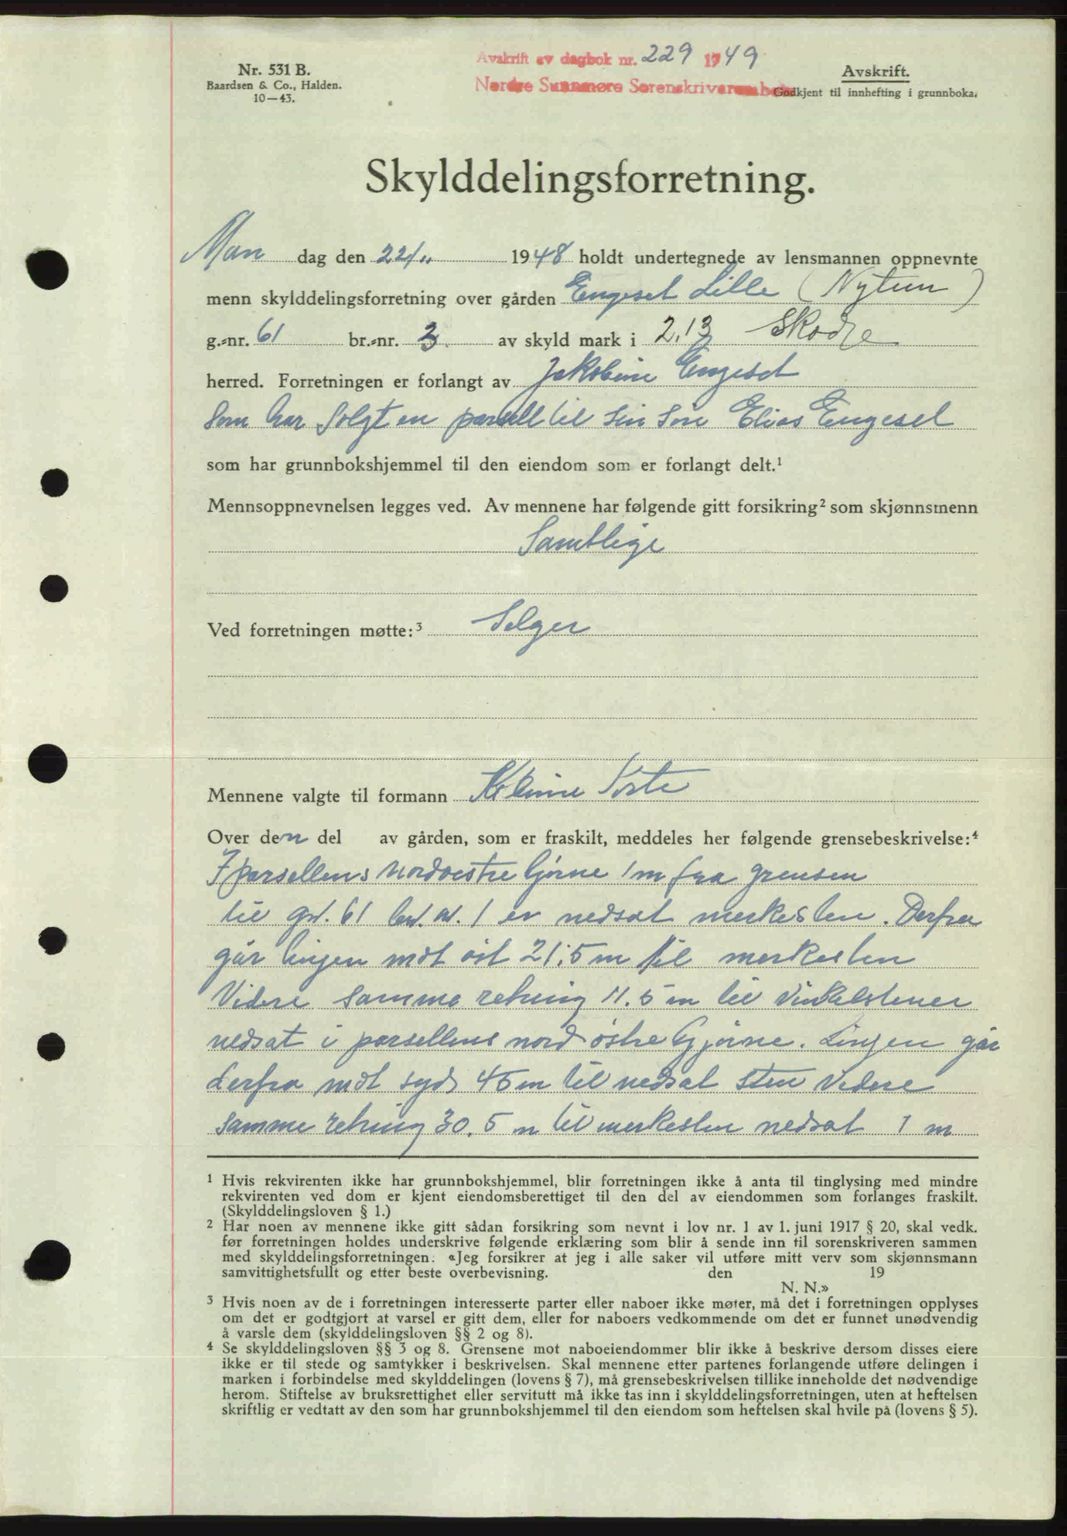 Nr. 531 B.
Baardsen & Co., Halden.
10—43.
Avskrift av dagbok nr. 229 1949
Nordre Sunnmøre Sorenskriverembete
Avskrift.
Godkjent til innhefting i grunnboka.
Skylddelingsforretning.
Man dag den 22/11 1948 holdt undertegnede av lensmannen oppnevnte
menn skylddelingsforretning over gården Engeset Lille (Nytun)
g.-nr. 61 br.-nr. 3 av skyld mark i 2,13 Skodje
herred. Forretningen er forlangt av Jakobine Engeset
Som har Solgt en parsell til Sin Søn Elias Engeset
som har grunnbokshjemmel til den eiendom som er forlangt delt.¹
Mennsoppnevnelsen legges ved. Av mennene har følgende gitt forsikring² som skjønnsmenn
Samtlige
Ved forretningen møtte:³ Selger
Mennene valgte til formann
Over den del av gården, som er fraskilt, meddeles her følgende grensebeskrivelse:⁴
I parsellens nordvestre hjørne 1 m fra grensen
til gr. 61 br. nr. 1 er nedsat merkesten. Derfra
går linjen mot øst 21,5 m til merkesten
Videre samme retning 11.5 m til Vinkelstener
nedsat i parsellens nord østre Hjørne. Linjen går
derfra mot syd 45 m til nedsat Sten Videre
samme retning 30,5 m til merkesten nedsat 1 m
¹ Hvis rekvirenten ikke har grunnbokshjemmel, blir forretningen ikke å anta til tinglysing med mindre
rekvirenten ved dom er kjent eiendomsberettiget til den del av eiendommen som forlanges fraskilt.
(Skylddelingsloven § 1.)
² Har noen av mennene ikke gitt sådan forsikring som nevnt i lov nr. 1 av 1. juni 1917 § 20, skal vedk.
før forretningen holdes underskrive følgende erklæring som blir å sende inn til sorenskriveren sammen
med skylddelingsforretningen. «Jeg forsikrer at jeg i alle saker vil utføre mitt verv som skjønnsmann
samvittighetsfullt og etter beste overbevisning. den 19
N. N.»
³ Hvis noen av de i forretningen interesserte parter eller naboer ikke møter, må det i forretningen opplyses
om det er godtgjort at varsel er gitt dem, eller for naboers vedkommende om det er funnet unødvendig
å varsle dem (skylddelingsloven §§ 2 og 8).
⁴ Se skylddelingsloven §§ 3 og 8. Grensene mot naboeiendommer blir ikke å beskrive dersom disses eiere
ikke er til stede og samtykker i beskrivelsen. Skal mennene etter partenes forlangende utføre delingen i
marken i forbindelse med skylddelingen (lovens § 7), må grensebeskrivelsen tillike inneholde det nødvendige
herom. Stiftelse av bruksrettighet eller servitutt må ikke tas inn i skylddelingsforretningen, uten at heftelsen
skriftlig er vedtatt av den som har grunnbokshjemmel til den eiendom som heftelsen skal hvile på (lovens § 5).